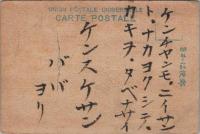 UNION POSTALE UNIVERSELLE
CARTE POSTALE
ケンチヤンモ、ニイサン
ト、ナカヨクシテ、
カキヲ、タベナサイ
ケンスケサン
ババ
ヨリ